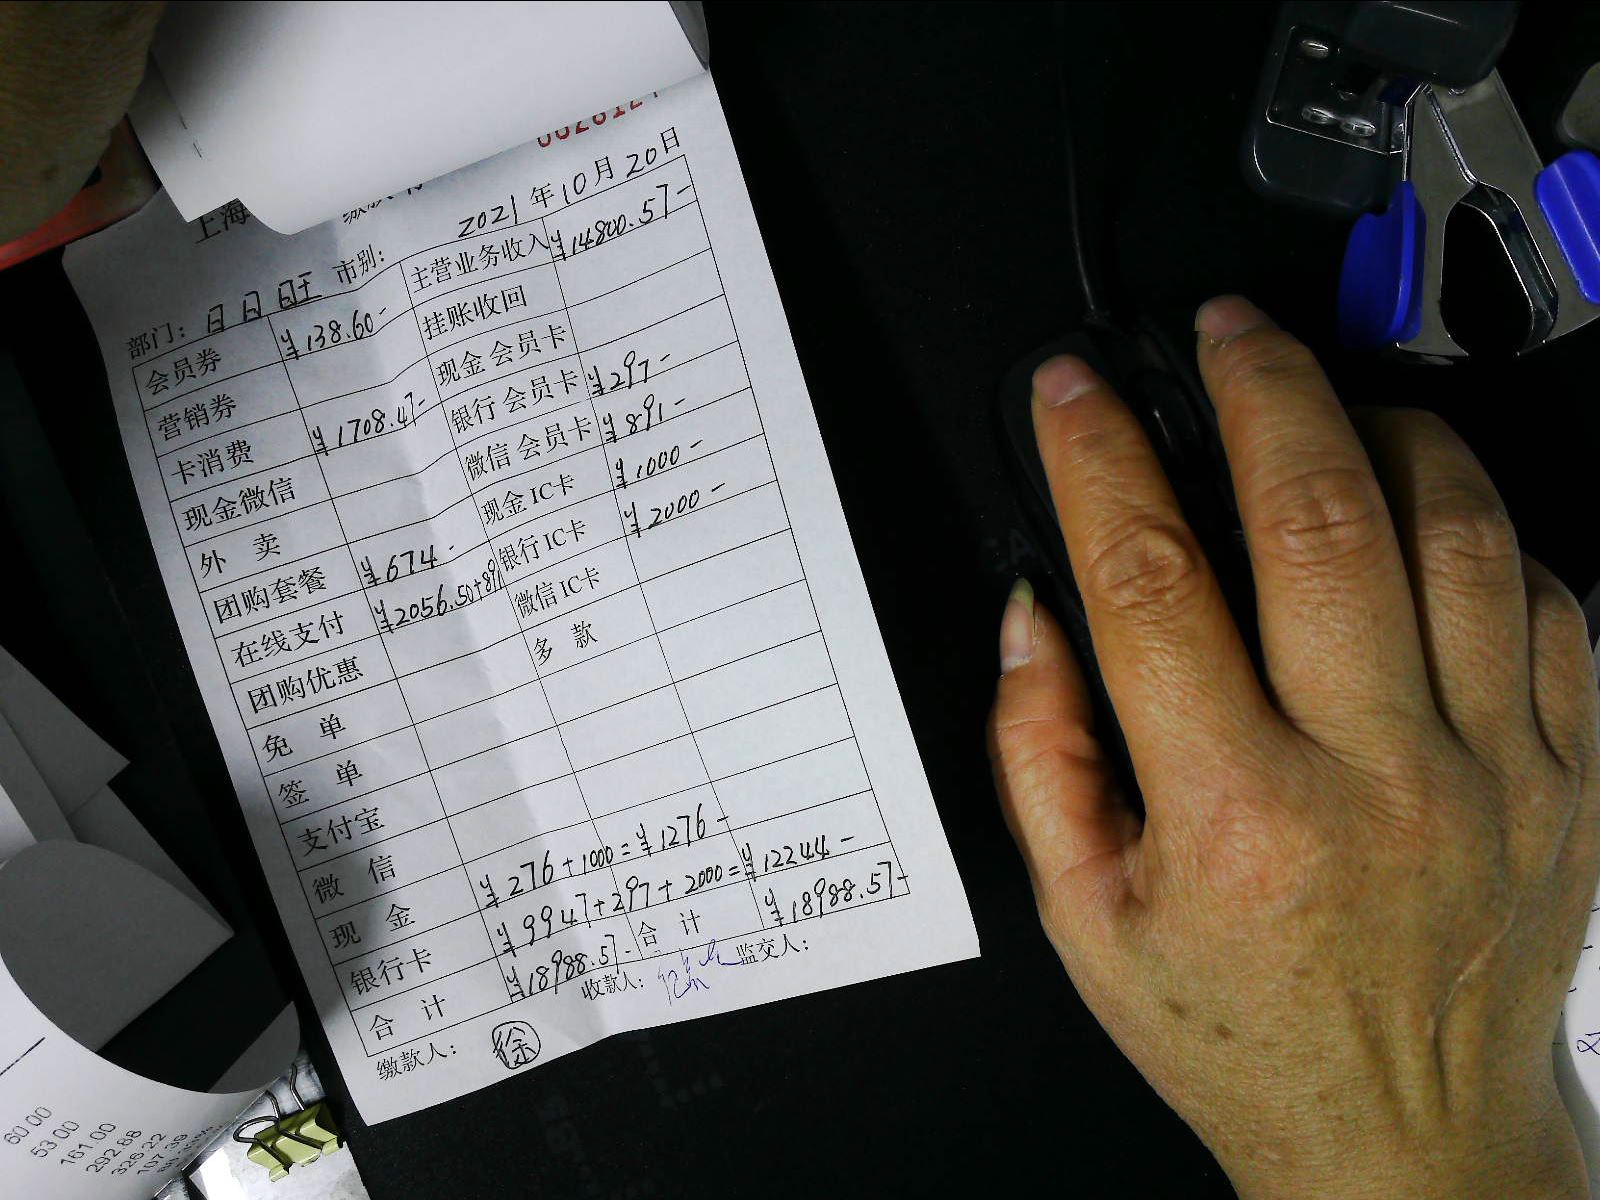 上海
2021年10月20日
部门：日日旺 市别：
会员券 ¥138.60- 主营业务收入 ¥14800.57-
营销券 挂账收回
卡消费 ¥1708.47- 现金会员卡
现金微信 银行会员卡 ¥297-
外 卖 微信会员卡 ¥891-
团购套餐 ¥674- 现金IC卡 ¥1000-
在线支付 ¥2056.50+891 银行IC卡 ¥2000-
团购优惠 微信IC卡
免 单 多 款
签 单
支付宝
微 信
现 金 ¥276+1000=¥1276-
银行卡 ¥9947+297+2000=¥12244-
合 计 ¥18988.57- 合 计 ¥18988.57-
缴款人： 徐 收款人： 监交人：
60.00
53.00
161.00
292.88
326.22
107.39